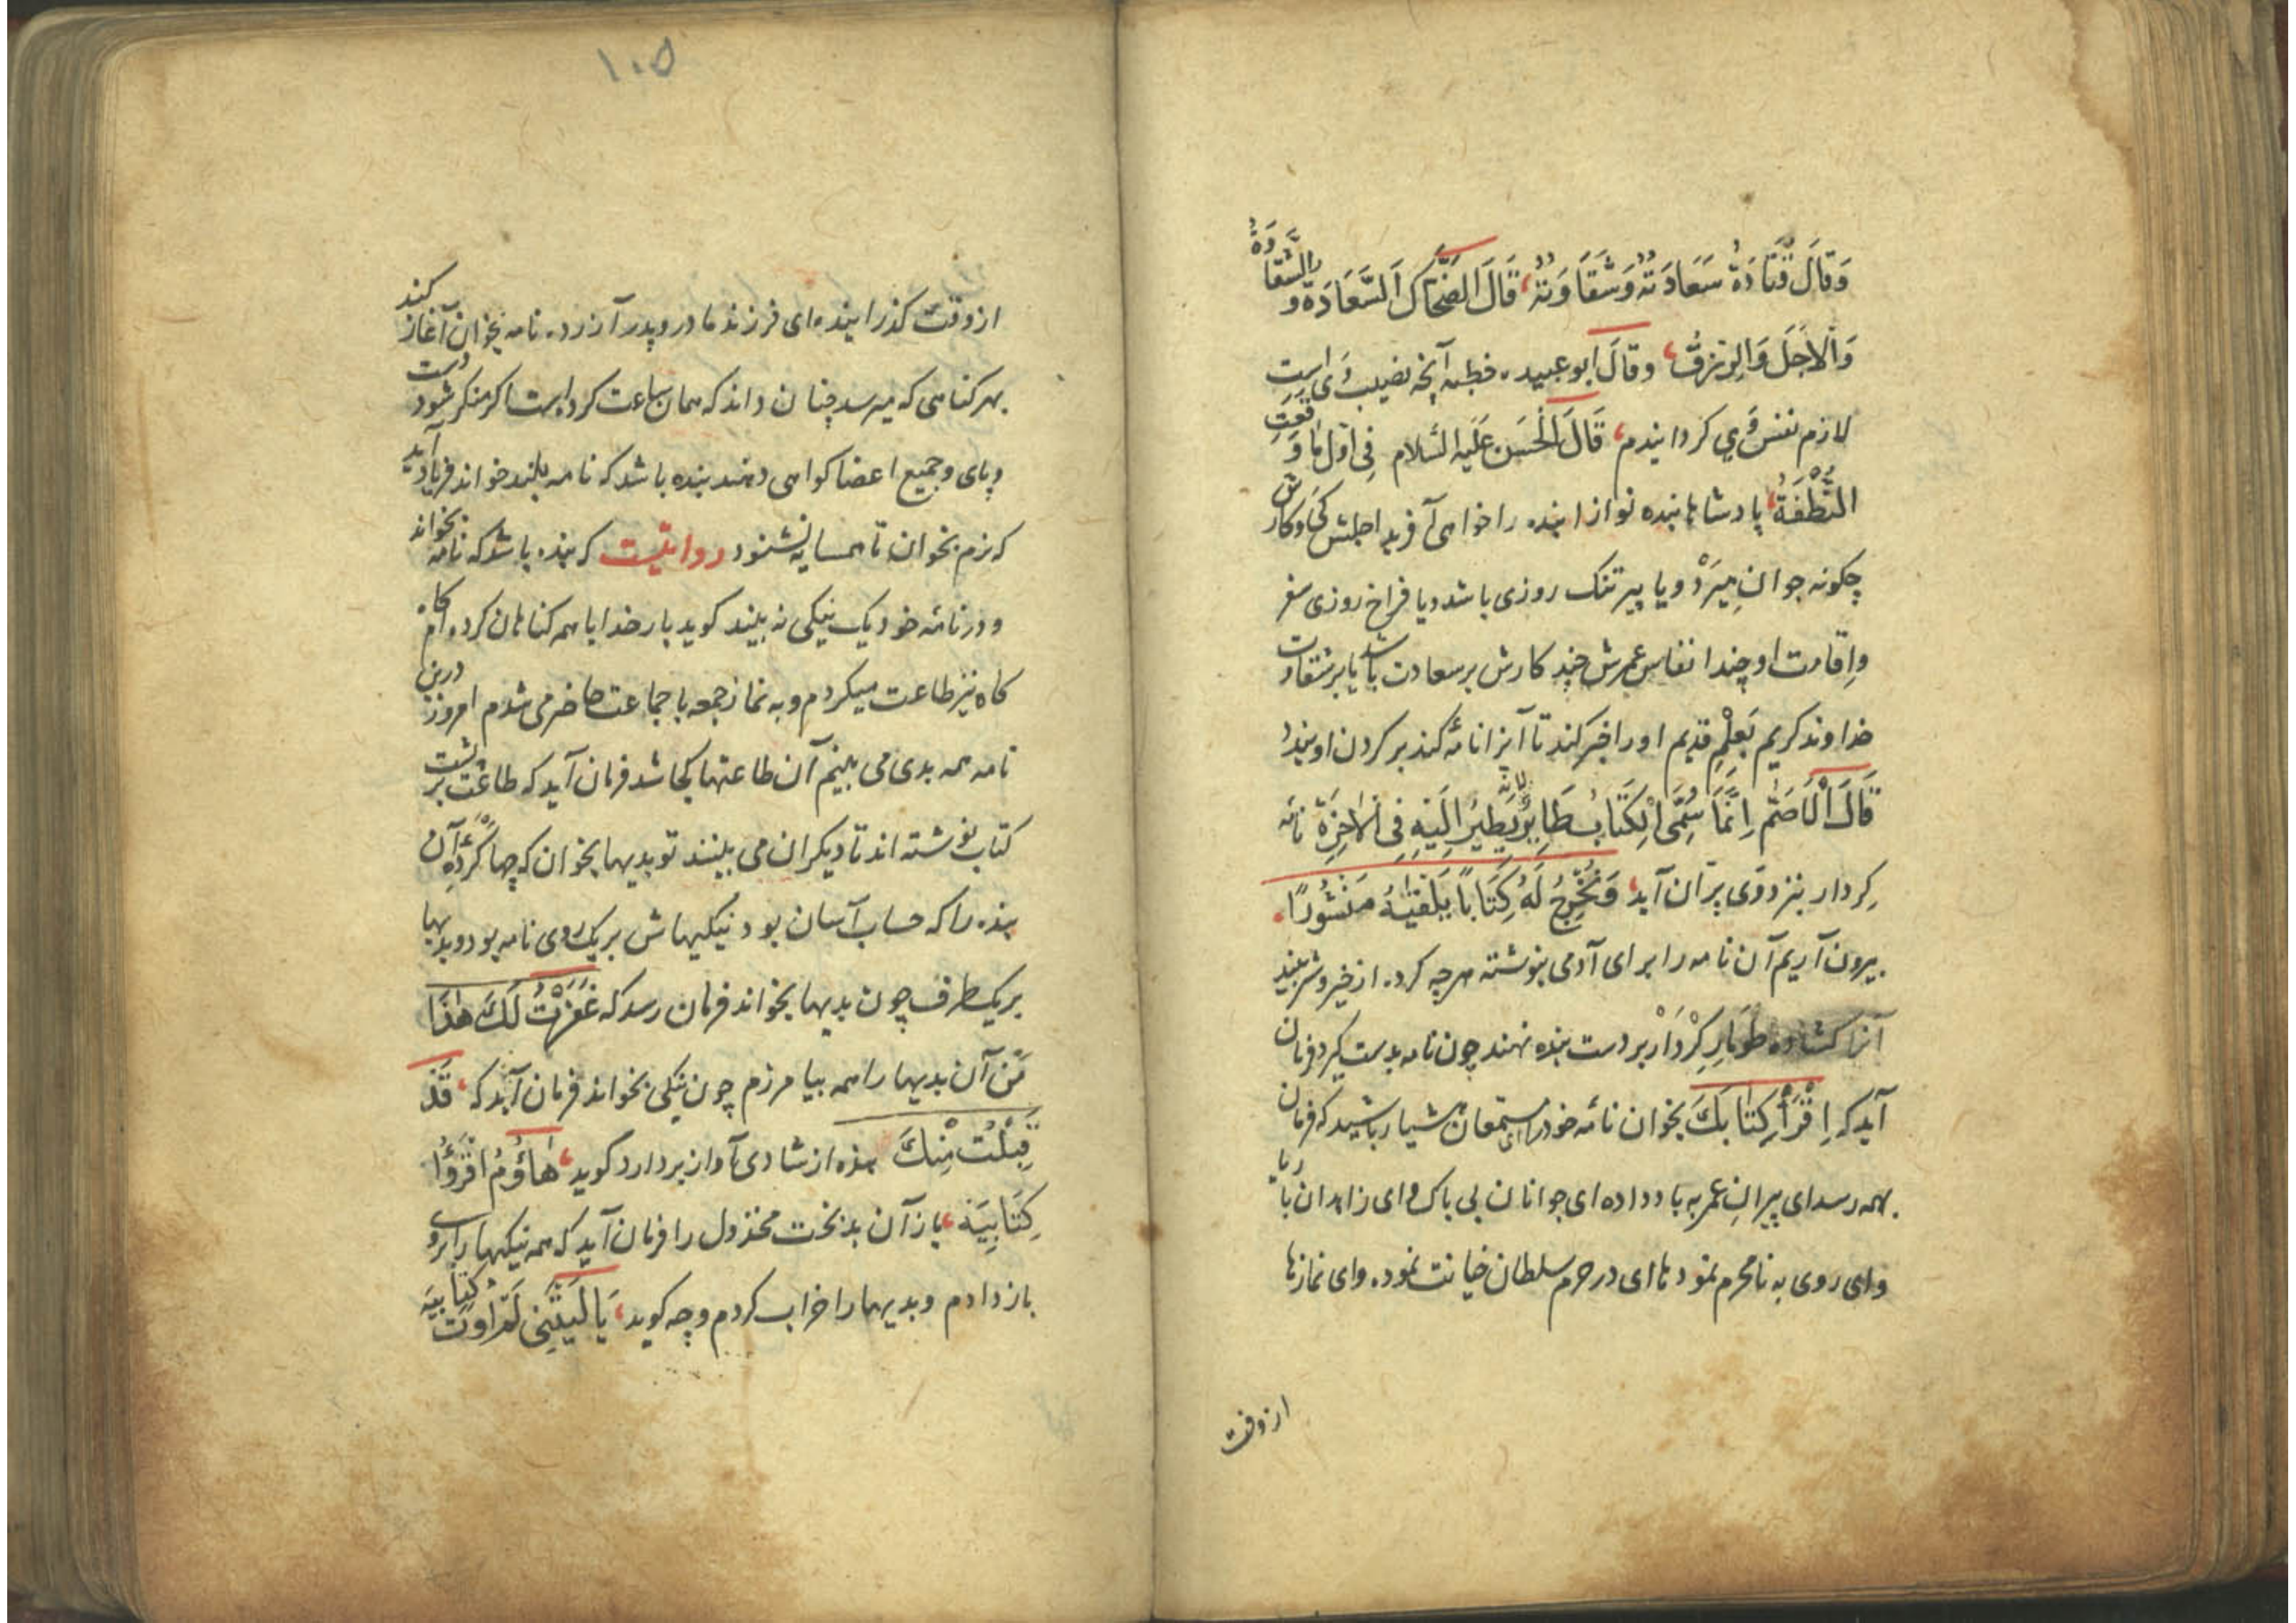 وَقَالَ قَتَادَةُ سَعَادَتُهُ وَشَقَاوَتُهُ، قَالَ الضَّحَّاكُ اَلسَّعَادَةُ وَالشَّقَاوَةُ
وَالْاَجَلُ وَالرِّزْقُ، وقَالَ ابو عبیده خطبه آنچه نصیب وَی است
لازم نفس وَی کردانیدم، قَالَ الْحَسَن عَلَیْهِ السَّلام فِی اَوَّلِ مَا وَقَعَتِ
النُّطْفَةُ، پادشاها بنده نوازا بنده را خواهی آفرید اجلش کَی و کارش
چکونه جوان مِیرَدْ و یا پیر تنک روزی باشد و یا فراخ روزی سفر
واِقامت او چند انفاس عمرش چند کارش بر سعادت باشد یا بر شقاوت
خداوند کریم بَعِلْمِ قدیم او را خبر کند تا آنرا نامه کند بر کردن او بندد
قَالَ الْاَصَمّ اِنَّمَا سُمِّیَ الْکِتَابُ طَایِرً لِاَنَّهُ یَطِیرُ اِلَیْهِ فِی الْاٰخِرَةِ نامه
کِردار بنزد وَی پرّان آید، وَنُخْرِجُ لَهُ کِتَابًا یَلْقٰیهُ مَنْشُورًا،
بیرون آریم آن نامه را برای آدمی بنوشته هرچه کرده از خیر و شر بیند
آنرا کشاده طومارِ کِرْدَارْ بر دست بنده نهند چون نامه بدست کیرد فرمان
آید که اِقْرَأْ کِتٰابَکَ بخوان نامهٔ خود را ای مستمعان هشیار باشید که فرمان
بهمه رسد ای پیران عمر به باد داده ای جوانان بی باک وای زاهدان با ریا
وای روی به نامحرم نموده ای در حرم سلطان خیانت نموده وای نمازها
از وقت
۱۰۵
از وقت کذرانیده ای فرزند مادر و پدر آزرده نامه بخوان آغاز کند
بهر کناهی که میرسد چنان داند که همان ساعت کرده است اکر منکر شود دست
و پای و جمیع اعضا کواهی دهند بنده باشد که نامه بلند خواند فریاد آید
که نرم بخوان تا همسایه نشنود روایتست که بنده باشد که نامه بخواند
و در نامهٔ خود یک نیکی نه بیند کوید بار خدایا همه کناهان کرده ام کاه
کاه نیز طاعت میکردم و به نماز جمعه با جماعت حاضر می شدم امروز درین
نامه همه بدی می بینم آن طاعتها کجا شد فرمان آید که طاعت بر پشت
کتاب نوشته اند تا دیکران می بینند تو بدیها بخوان که چها کَرْدَهٔ آن
بنده را که حساب آسان بود نیکیهاش بر یک روی نامه بود و بدیها
بر یک طرف چون بدیها بخواند فرمان رسد که غَفَرْتُ لَکَ هٰذَا
مَن آن بدیها را همه بیامرزم چون نیکی بخواند فرمان آید که، قَدْ
قَبِلْتُ مِنْکَ بنده از شادی آواز بردارد کوید، هٰاؤُمُ اقْرَؤُا
کِتَابِیَهْ، باز آن بدبخت مخذول را فرمان آید که همه نیکیها را بر روی
باز دادم و بدیها را خراب کردم و چه کوید، یَا لَیْتَنِی لَمْ اُوتَ کِتَابِیَه